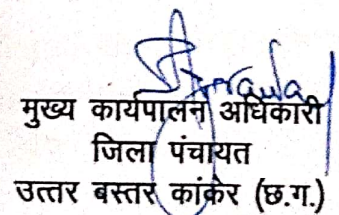 मुख्य कार्यपालन अधिकारी
जिला पंचायत
उत्तर बस्तर कांकेर (छ.ग.)